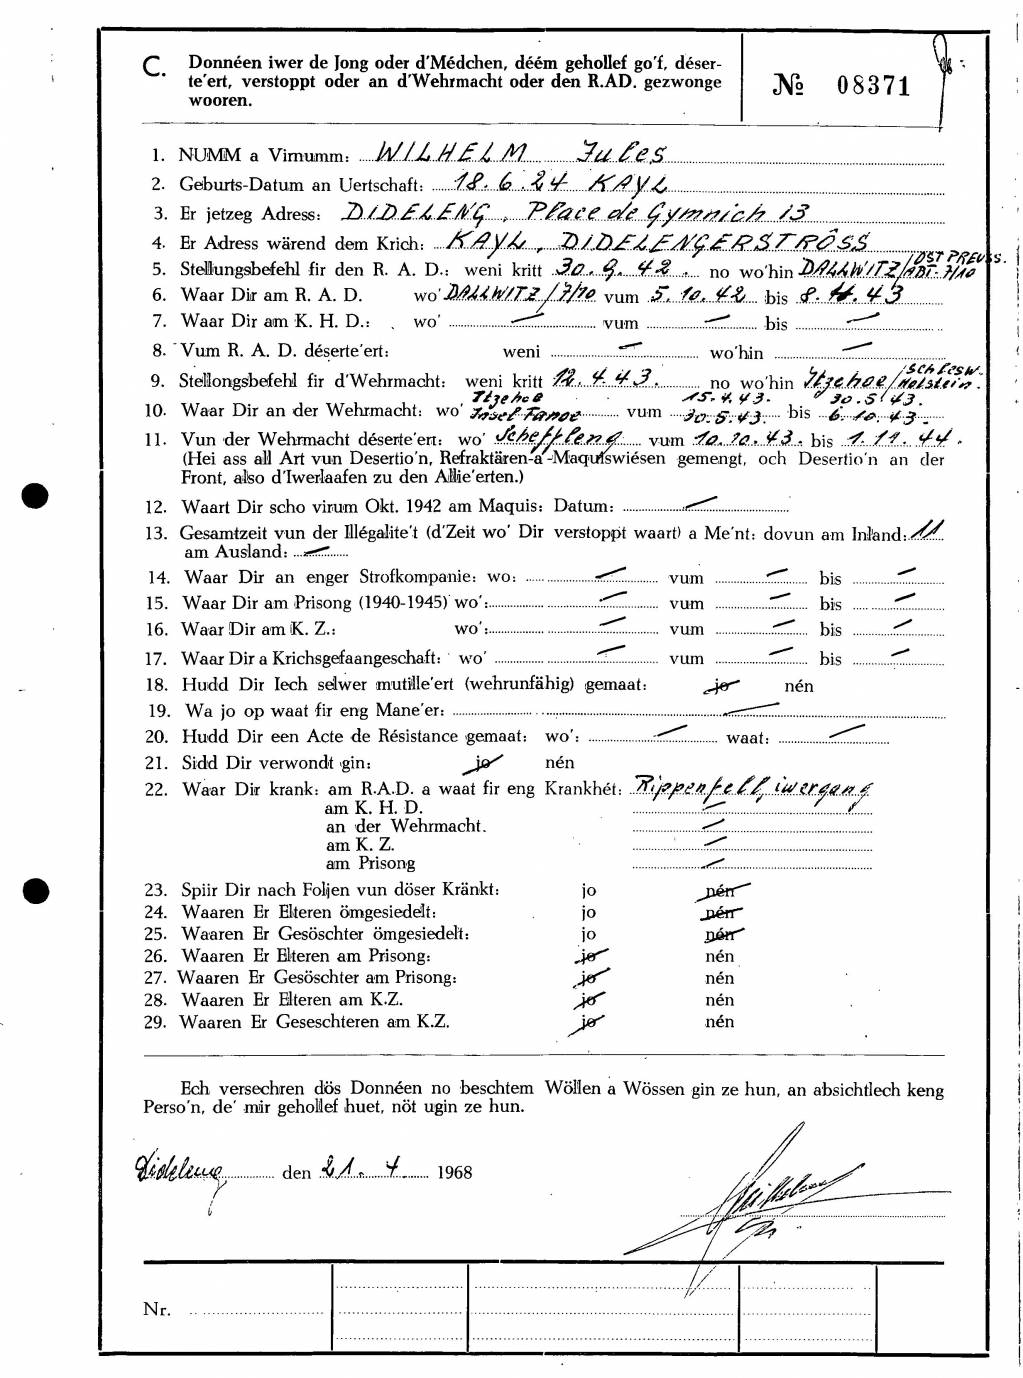 C. Donnéen iwer de Jong oder d'Médchen, déém gehollef go'f, déser-
te'ert, verstoppt oder an d'Wehrmacht oder den R.AD. gezwonge
wooren.
№ 08371
1. NUMM a Virnumm: WILHELM Jules
2. Geburts-Datum an Uertschaft: 18.6.24 KAYL
3. Er jetzeg Adress: DIDELENG, Place de Gymnich 13
4. Er Adress wärend dem Krich: KAYL, DIDELENGERSTRÔSS
5. Stellungsbefehl fir den R. A. D.: weni kritt 30.9.42. no wo'hin DALLWITZ/OST PREUSS. ABT. 7/10
6. Waar Dir am R. A. D. wo' DALLWITZ/7/10 vum 5.10.42 bis 8.4.43
7. Waar Dir am K. H. D.: wo' — vum — bis —
8. Vum R. A. D. déserte'ert: weni — wo'hin —
9. Stellongsbefehl fir d'Wehrmacht: weni kritt 12.4.43. no wo'hin Itzehoe/Schlesw. Holstein.
Itzehoe 15.4.43. 30.5.43.
10. Waar Dir an der Wehrmacht: wo' Insel Fanoe vum 30.5.43. bis 6.10.43.
11. Vun der Wehrmacht déserte'ert: wo' Scheffleng vum 10.10.43. bis 1.11.44.
(Hei ass all Art vun Desertio'n, Refraktären-a'-Maquiswiésen gemengt, och Desertio'n an der
Front, also d'Iwerlaafen zu den Allie'erten.)
12. Waart Dir scho virum Okt. 1942 am Maquis: Datum: —
13. Gesamtzeit vun der Illégalite't (d'Zeit wo' Dir verstoppt waart) a Me'nt: dovun am Inland: 11
am Ausland: —
14. Waar Dir an enger Strofkompanie: wo: — vum — bis —
15. Waar Dir am Prisong (1940-1945) wo': — vum — bis —
16. Waar Dir am K. Z.: wo': — vum — bis —
17. Waar Dir a Krichsgefaangeschaft: wo' — vum — bis —
18. Hudd Dir Iech selwer mutille'ert (wehrunfähig) gemaat: jo nén
19. Wa jo op waat fir eng Mane'er: —
20. Hudd Dir een Acte de Résistance gemaat: wo': — waat: —
21. Sidd Dir verwondt gin: jo nén
22. Waar Dir krank: am R.A.D. a waat fir eng Krankhét: Rippenfell, iwergang
am K. H. D. —
an der Wehrmacht. —
am K. Z. —
am Prisong —
23. Spiir Dir nach Foljen vun döser Kränkt: jo nén
24. Waaren Er Elteren ömgesiedelt: jo nén
25. Waaren Er Gesöschter ömgesiedelt: jo nén
26. Waaren Er Elteren am Prisong: jo nén
27. Waaren Er Gesöschter am Prisong: jo nén
28. Waaren Er Elteren am K.Z. jo nén
29. Waaren Er Geseschteren am K.Z. jo nén
Ech versechren dös Donnéen no beschtem Wöllen a Wössen gin ze hun, an absichtlech keng
Perso'n, de' mir gehollef huet, nöt ugin ze hun.
Dideleng den 21. 4. 1968
Nr.